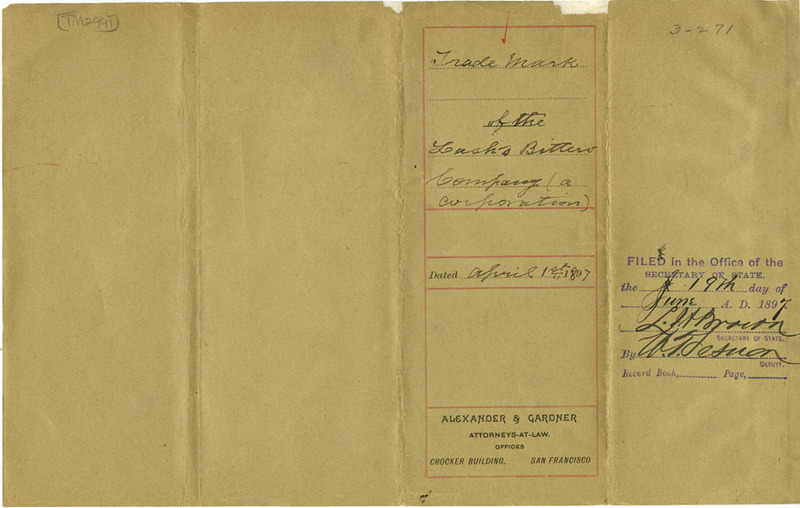 TM2991
3-271
Trade Mark
of the
Lash's Bitters
Company (a
corporation)
Dated April 1st 1897
ALEXANDER & GARDNER
ATTORNEYS-AT-LAW.
OFFICES
CROCKER BUILDING, SAN FRANCISCO
FILED in the Office of the
SECRETARY OF STATE.
the 19th day of
June A. D. 1897
L. H. Brown
SECRETARY OF STATE.
By
DEPUTY.
Record Book, Page,